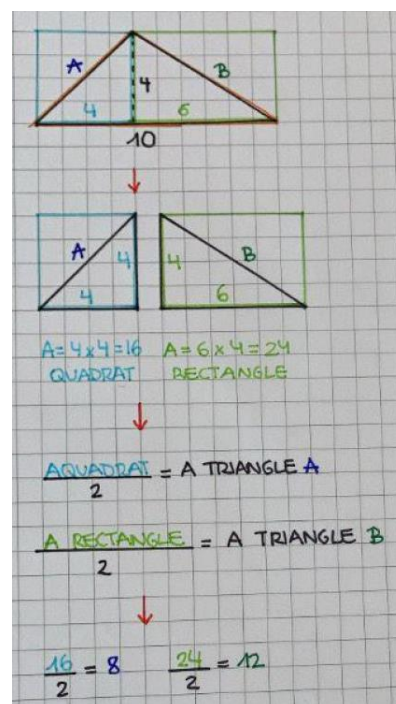 A B
4
4 6
10
A B
4 4
4 6
A=4x4=16 A=6x4=24
QUADRAT RECTANGLE
AQUADRAT/2 = A TRIANGLE A
A RECTANGLE/2 = A TRIANGLE B
16/2 = 8 24/2 = 12